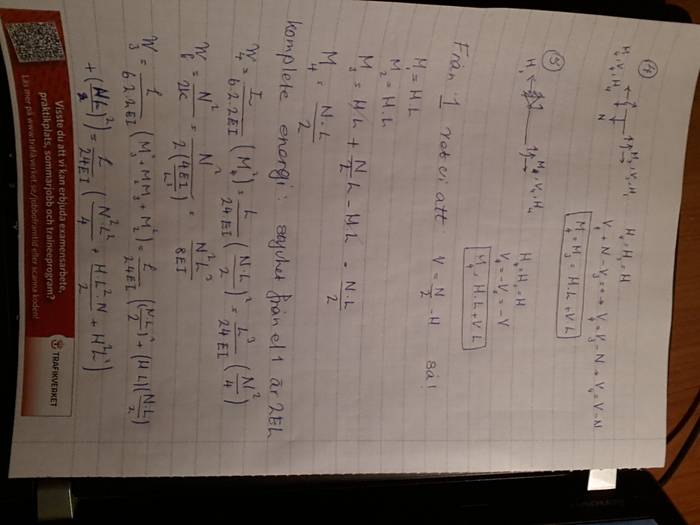 4)
M₃, V₃, H₃
N
M₄, V₄, H₄
H₄ = H₃ = H
V₄ + N - V₃ = 0 → V₄ = V₃ - N → V₄ = V - N
M₄ = M₃ = H·L + VL
5)
H₁
M₄, V₄, H₄
H₄ = H₁ = H
V₄ = -V = -V
M₄ = H·L + VL
Från 1 vet vi att V = N/2 - H så!
M₁ = H·L
M₂ = H·L
M₃ = HL + N/2 L - HL = N·L/2
M₄ = N·L/2
komplete energi: styvhet från el 1 är 2EI
W₄ = L/6·2·2EI (M₄²) = L/24EI (N·L/2)² = L³/24EI (N²/4)
= N²/2k = N²/2(4EI/L³) = N²L³/8EI
W₃ = L/6·2·2EI (M₃² + M₂M₃ + M₂²) = L/24EI ((NL/2)² + (HL)(N·L/2)
+ (HL)²) = L/24EI (N²L²/4 + HL²·N/2 + H²L²)
Visste du att vi kan erbjuda examensarbete,
praktikplats, sommarjobb och traineeprogram?
Läs mer på www.trafikverket.se/jobbaframtid eller scanna koden!
TRAFIKVERKET